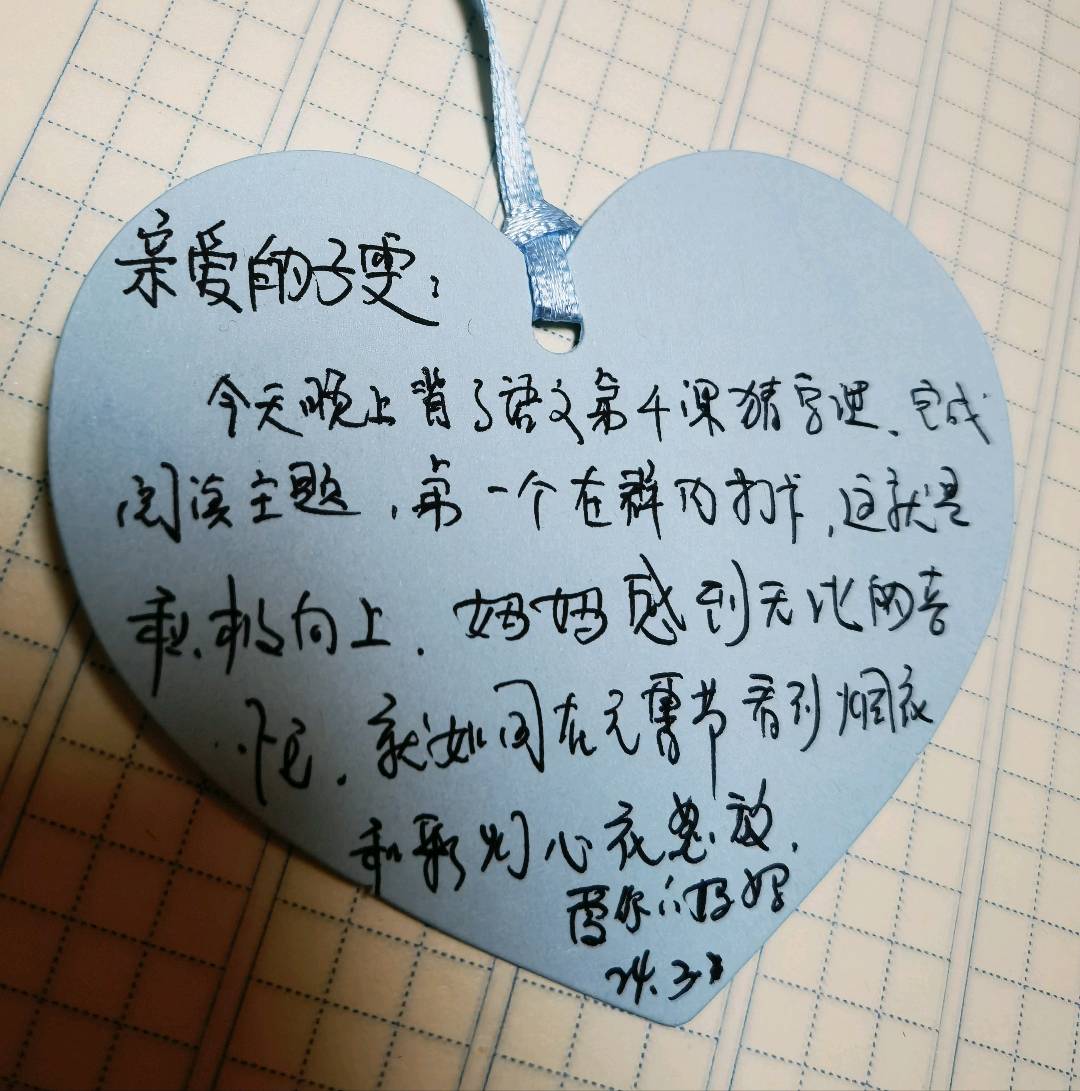 亲爱的子雯：
今天晚上背了语文第4课猜字谜、完成
阅读主题，第一个在群内打卡，这就是
积极向上。妈妈感到无比的喜
悦。就如同在元宵节看到烟花
和彩灯心花怒放。
爱你的妈妈
24.3.3